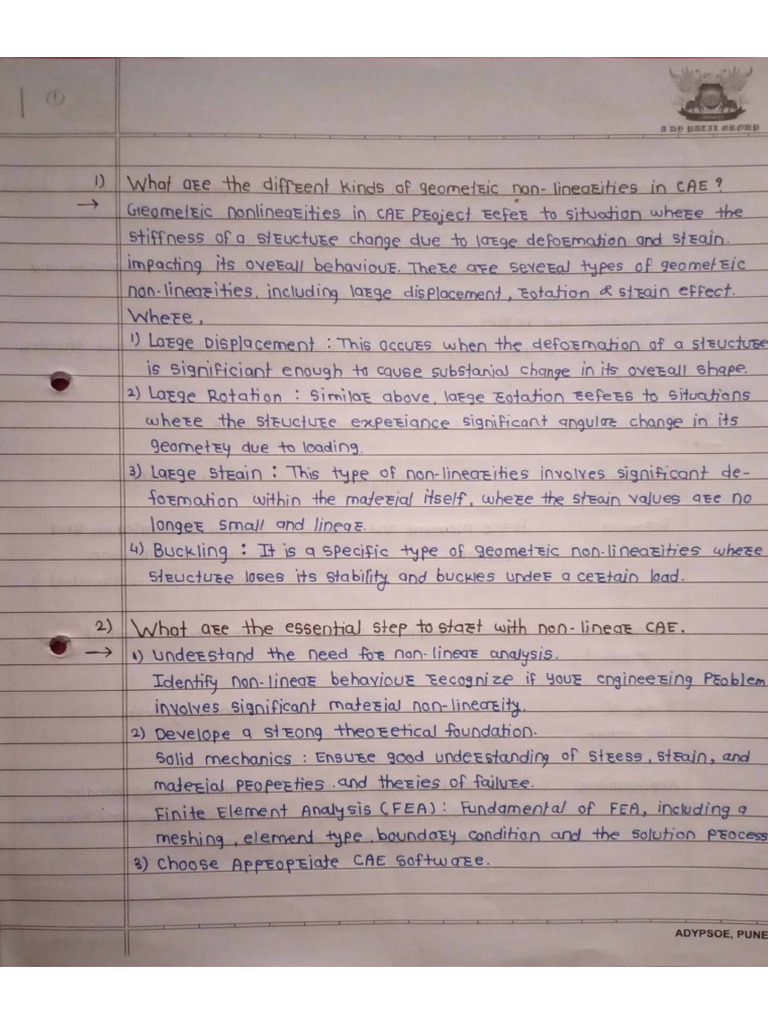 1 ①
A DY PATIL GROUP
1) What are the diffrent kinds of geometric non-linearities in CAE?
→ Geometric nonlinearities in CAE project refer to situation where the
stiffness of a structure change due to large deformation and strain.
impacting its overall behaviour. There are several types of geometric
non-linearities, including large displacement, rotation & strain effect.
Where,
1) Large Displacement : This occurs when the deformation of a structure
is significiant enough to cause substanial change in its overall shape.
2) Large Rotation : Similar above, large rotation refers to situations
where the structure experiance significant angular change in its
geometry due to loading.
3) Large strain : This type of non-linearities involves significant de-
formation within the material itself, where the strain values are no
longer small and linear.
4) Buckling : It is a specific type of geometric non-linearities where
structure loses its stability and buckles under a certain load.
2) What are the essential step to start with non-linear CAE.
→ 1) Understand the need for non-linear analysis.
Identify non-linear behaviour recognize if your engineering problem
involves significant material non-linearity.
2) Develope a strong theoretical foundation.
Solid mechanics : Ensure good understanding of stress, strain, and
material properties and theries of failure.
Finite Element Analysis (FEA) : Fundamental of FEA, including a
meshing, element type, boundary condition and the solution process
3) Choose Appropriate CAE software.
ADYPSOE, PUNE